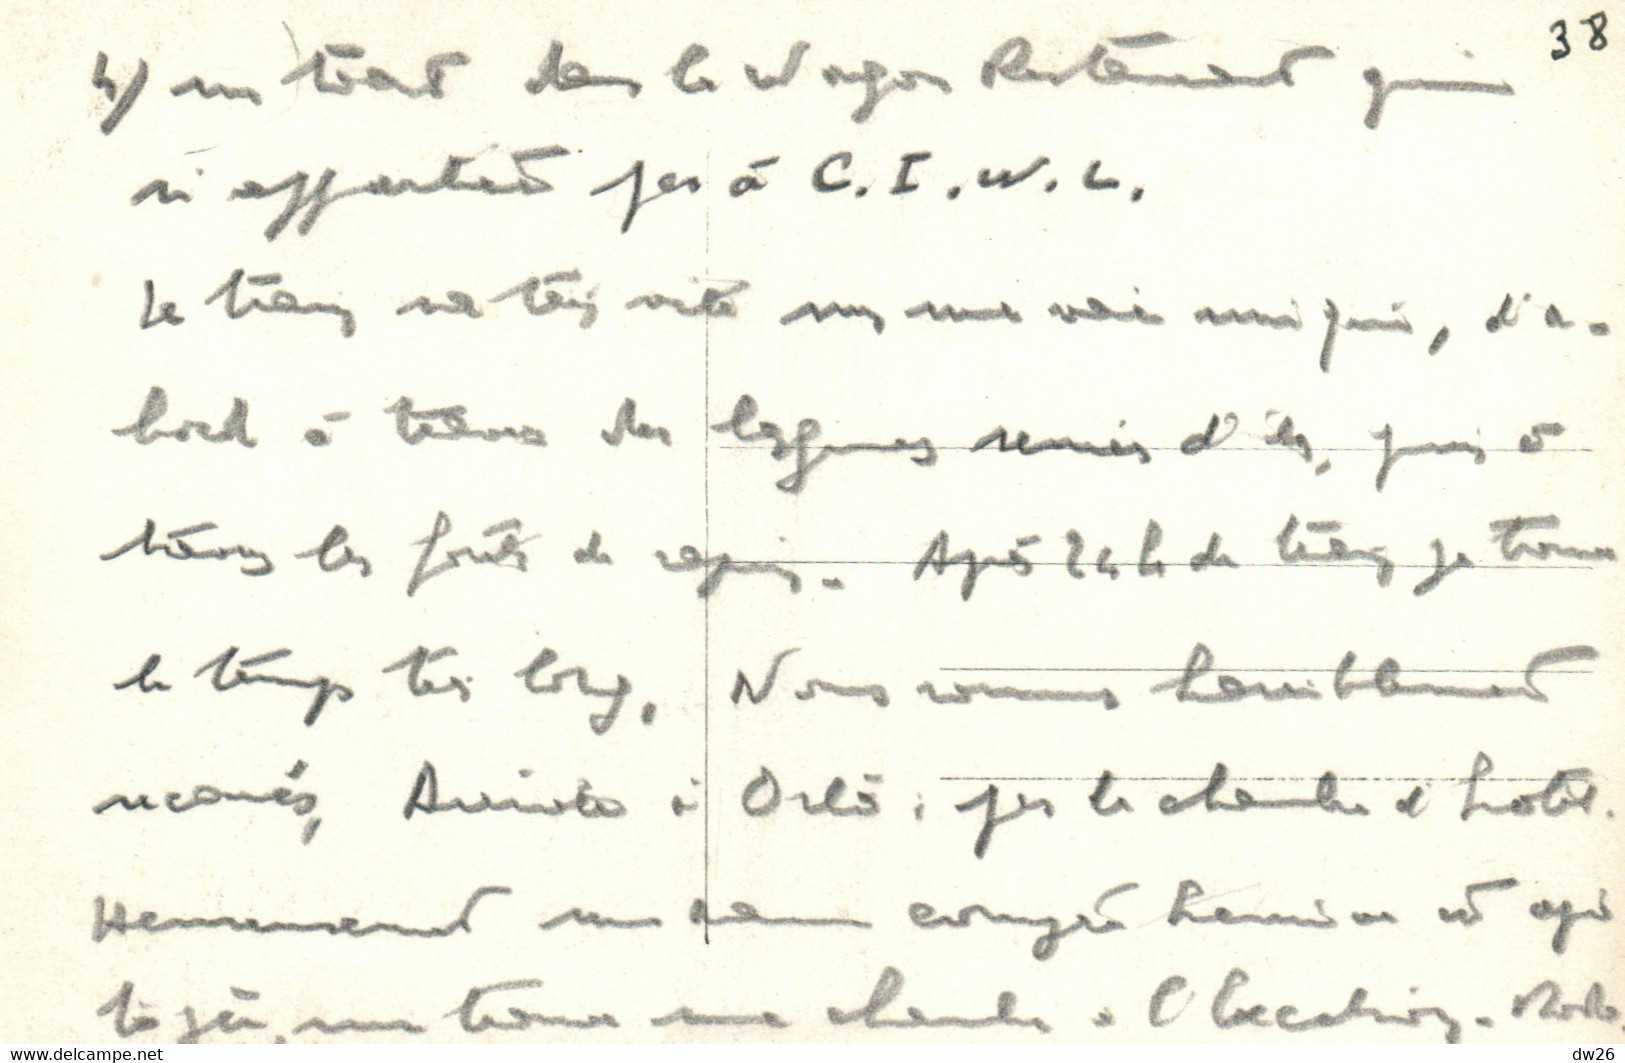 38
4) un trait dans le Wagon Restaurant qui
n'appartient pas à C.I.W.L.
Le train va très vite sur une voie unique, d'a-
bord à travers des lagunes semées d'îles, puis à
travers les forêts de sapins. Après 24 h de train je trouve
le temps très long. Nous sommes terriblement
secoués, Arrivée à Oslo ; pas de chambre d'hôtel.
Heureusement un
trouve une chambre à l'
dw26
www.delcampe.net